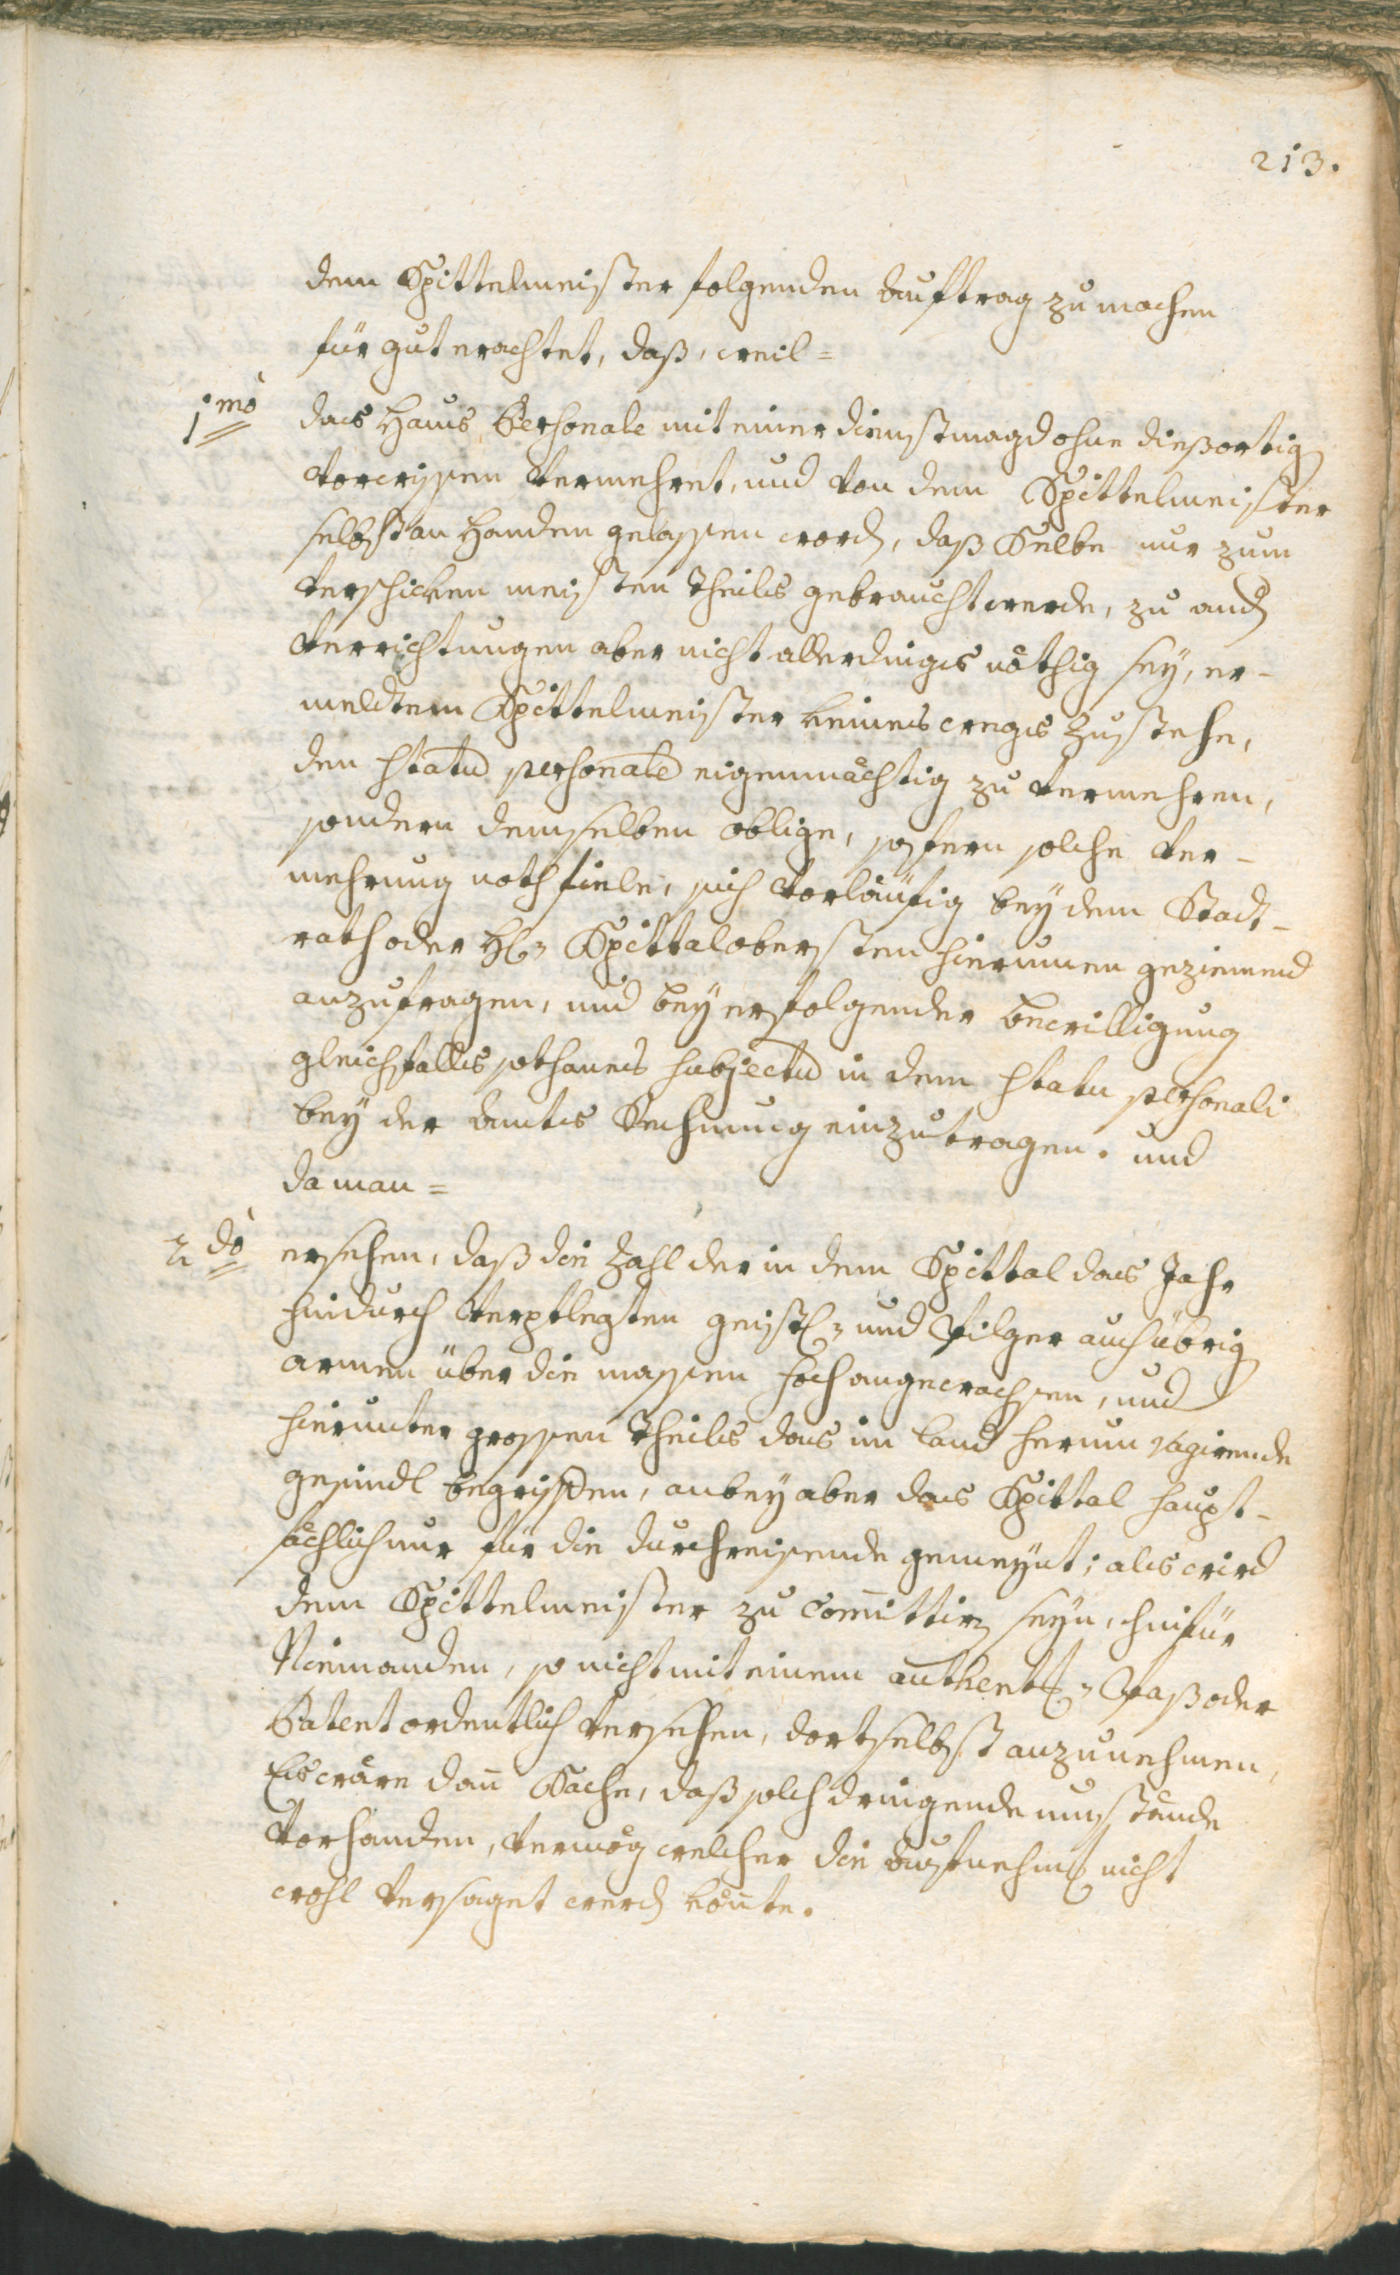 213.
dem Spittelmeister folgenden Auftrag zu machen
für gut erachtet, daß, weil=
1mò das Haus Personale mit einer dienstmagd ohne dießortig
vorwissen vermehret, und von dem Spittelmeister
selbst an Handen gelassen word, daß Selbe nur zum
verschicken meisten Theils gebraucht werde, zu and
Verrichtungen aber nicht allerdings nöthig sey, er-
meldtem Spittelmeister keines wegs zustehe,
den statū personalē eigenmächtig zu vermehren,
sondern demselben oblige, soferrn solche ver-
mehrung noth fiele, sich vorläufig bey dem Stadt-
rath oder H. Spittalobersten hierummen geziemend
anzufragen, und bey erfolgender bewilligung
gleichfalls sothanes subjectū in dem statu personali
bey der Amts Rechnung einzutragen. und
da man=
2dò ersehen, daß die Zahl der in dem Spittal das Jahr
hindurch verpflegten geistl. und Pilger auch übrig
armen über die massen hoch angewachsen, und
hierunter grossen Theils das im land herum vagirende
gesindl begriffen, anbey aber das Spittal haupt-
sächlich nur für die durchreisende gemeynt; als wird
dem Spittelmeister zu com̄ittirn seyn, hinfür
Niemanden, so nicht mit einem authent. Paß oder
Patent ordentlich versehen, dortselbst anzunehmen,
Es wäre dan̄ Sache, daß solch dringende umstände
vorhanden, vermög welcher die Aufnehm nicht
wohl versaget werd kön̄te.